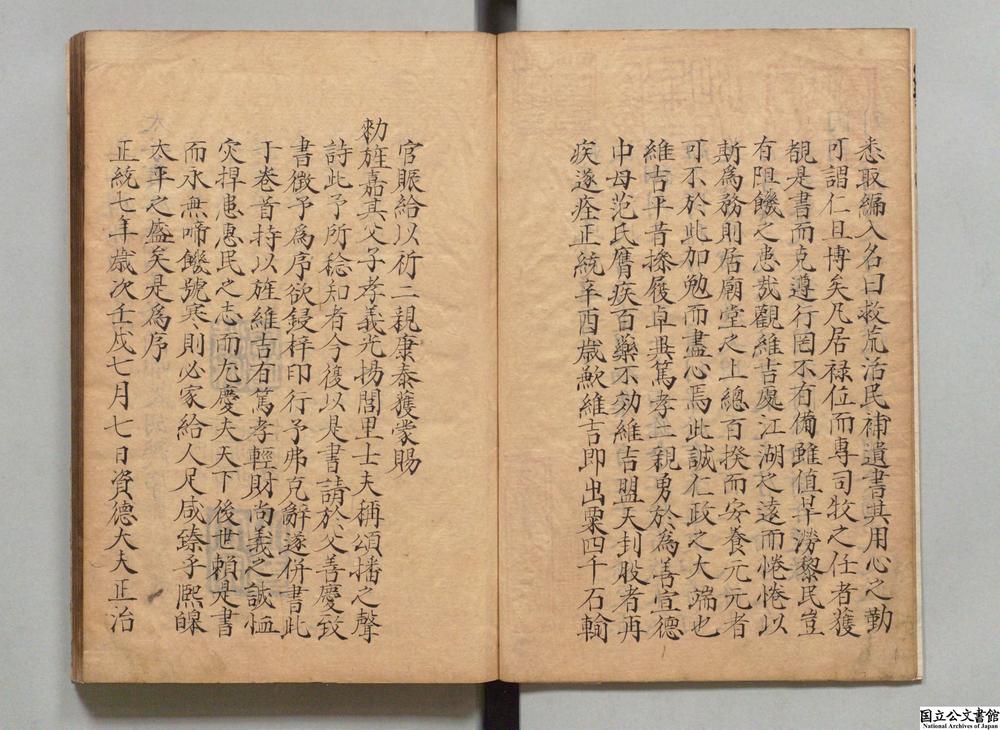 悉取編入名曰救荒治民補遺書其用心之勤
可謂仁且博矣凡居禄位而專司牧之任者獲
覩是書而克遵行罔不有備雖值旱澇黎民豈
有阻饑之患哉觀維吉處江湖之遠而惓惓以
斯為務則居廟堂之上總百揆而安養元元者
可不於此加勉而盡心焉此誠仁政之大端也
維吉平昔操履卓異篤孝二親勇於為善宣德
中母范氏膺疾百藥不効維吉盟天封股者再
疾遂痊正統辛酉歲歉維吉即出粟四千石輸
官賑給以祈二親康泰獲蒙賜
勑旌嘉其父子孝義光揚閭里士夫稱頌播之聲
詩此予所稔知者今復以是書請於父善慶致
書徵予為序欲鋟梓印行予弗克辭遂併書此
于卷首持以旌維吉有篤孝輕財尚義之誠恤
灾捍患惠民之志而尢慶夫天下後世頼是書
而永無啼饑號寒則必家給人足咸臻乎熈皥
太平之盛矣是為序
正統七年歲次壬戌七月七日資德大夫正治
国立公文書館
National Archives of Japan